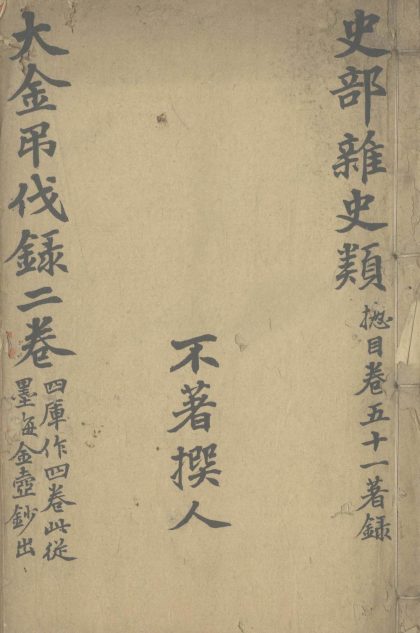 史部雜史類
摠目卷五十一著録
不著撰人
大金吊伐録二卷
四庫作四卷此從
墨海金壺鈔出